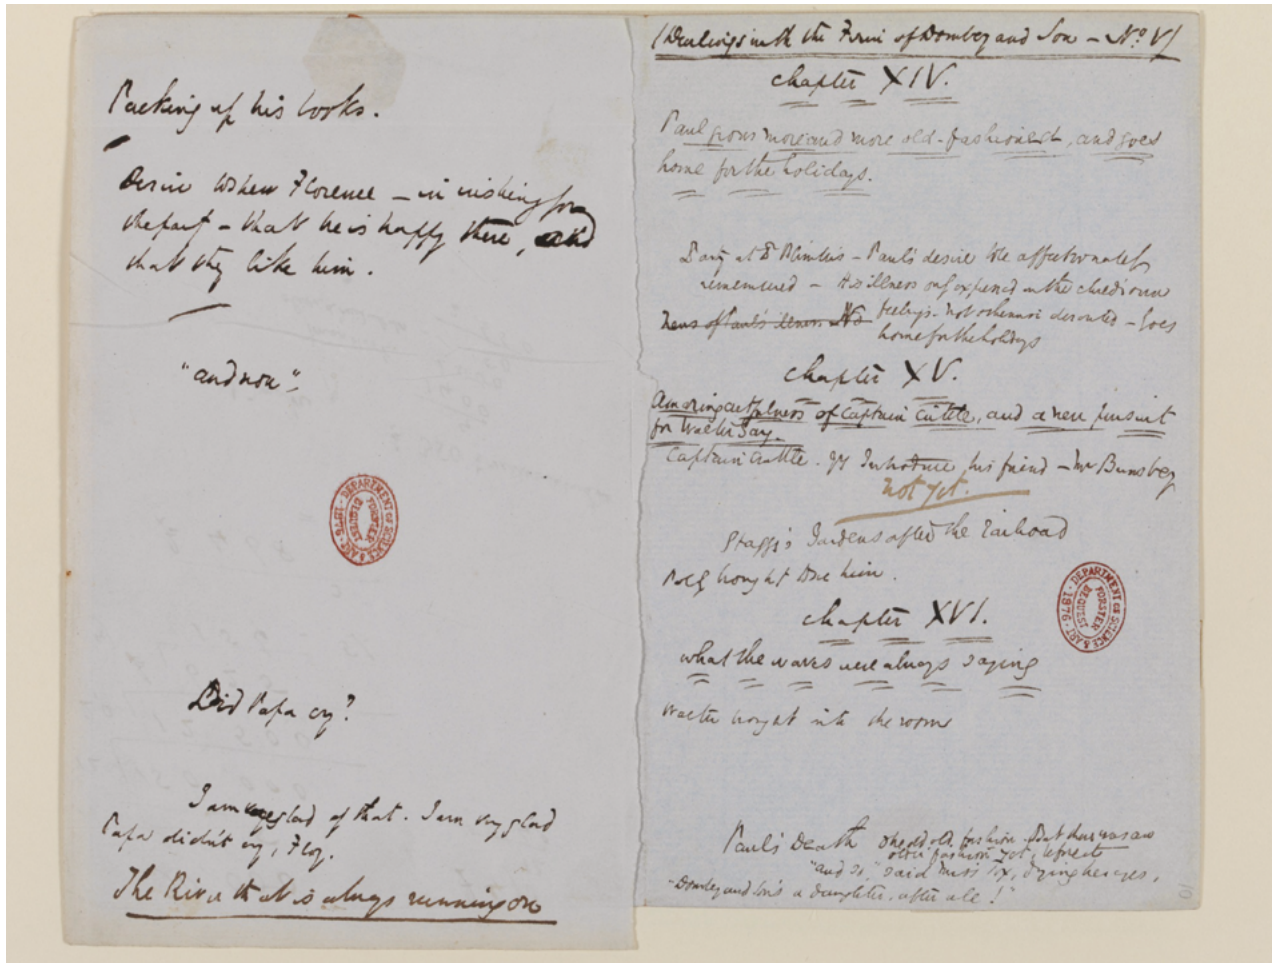 Packing up his books.
Desire to shew Florence — in wishing for
the part — that he is happy there, and
that they like him.
"and now".
DEPARTMENT OF SCIENCE & ART · 1876 ·
FORSTER
BEQUEST
Did Papa cry?
I am very glad of that. I am very glad
Papa didn't cry, Floy.
The River that is always running on
(Dealings with the Firm of Dombey and Son — No. V)
Chapter XIV.
Paul grows more and more old-fashioned, and goes
home for the holidays.
Party at Dr Blimbers — Paul's desire to be affectionately
remembered — His illness only expressed in the child's own
News of Paul's illness No feelings — not otherwise described — Goes
home for the holidays
Chapter XV.
Amazing artfulness of Captain Cuttle, and a new pursuit
for Walter Gay.
Captain Cuttle. Introduce his friend — Mr Bunsby
Not yet.
Staggs's Gardens after the railroad
Polly brought to see him.
Chapter XVI.
What the waves were always saying
Walter brought into the room
DEPARTMENT OF SCIENCE & ART · 1876 ·
FORSTER
BEQUEST
Paul's Death old old fashion. But there was an
older fashion yet,
"and so," said Miss Tox, drying her eyes,
"Dombey and Son's a daughter, after all!"
10